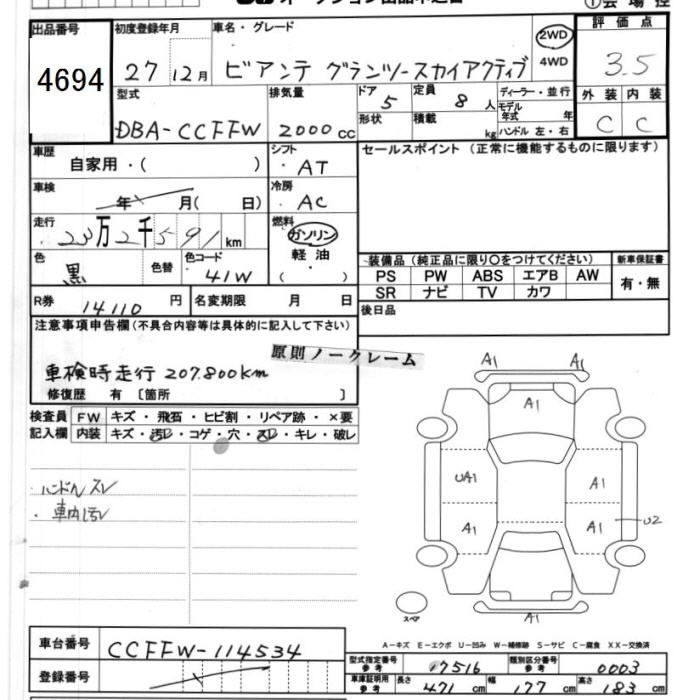 出品番号
4694
初度登録年月
27年12月
車名・グレード
ビアンテ グランツースカイアクティブ
2WD
4WD
評価点
3.5
型式
DBA-CCFFW
排気量
2000cc
ドア
5
定員
8人
形状
積載
kg
ディーラー・並行
モデル年式 年
ハンドル 左・右
外装 内装
C C
車歴
自家用・( )
シフト
AT
セールスポイント (正常に機能するものに限ります)
車検
年 月( 日)
冷房
AC
走行
23万2千591km
燃料
ガソリン
軽油
( )
色
黒
色替
色コード
41W
装備品 (純正品に限り○をつけてください)
新車保証書
PS PW ABS エアB AW
SR ナビ TV カワ
有・無
R券
14110円
名変期限 月 日
後日品
注意事項申告欄(不具合内容等は具体的に記入して下さい)
原則ノークレーム
車検時走行 207.800km
修復歴 有 〔箇所 〕
検査員記入欄
FW キズ・飛石・ヒビ割・リペア跡・×要
内装 キズ・汚レ・コゲ・穴・スレ・キレ・破レ
・ハンドルスレ
・車内汚レ
A1 A1
A1
UA1 A1
A1 A1 U2
スペア
A1
A-キズ E-エクボ U-凹み W-補修跡 S-サビ C-腐食 XX-交換済
車台番号
CCFFW-114534
登録番号
型式指定番号 参考 17516
類別区分番号 参考 0003
車庫証明用 参考 長さ 471cm 幅 177cm 高さ 183cm